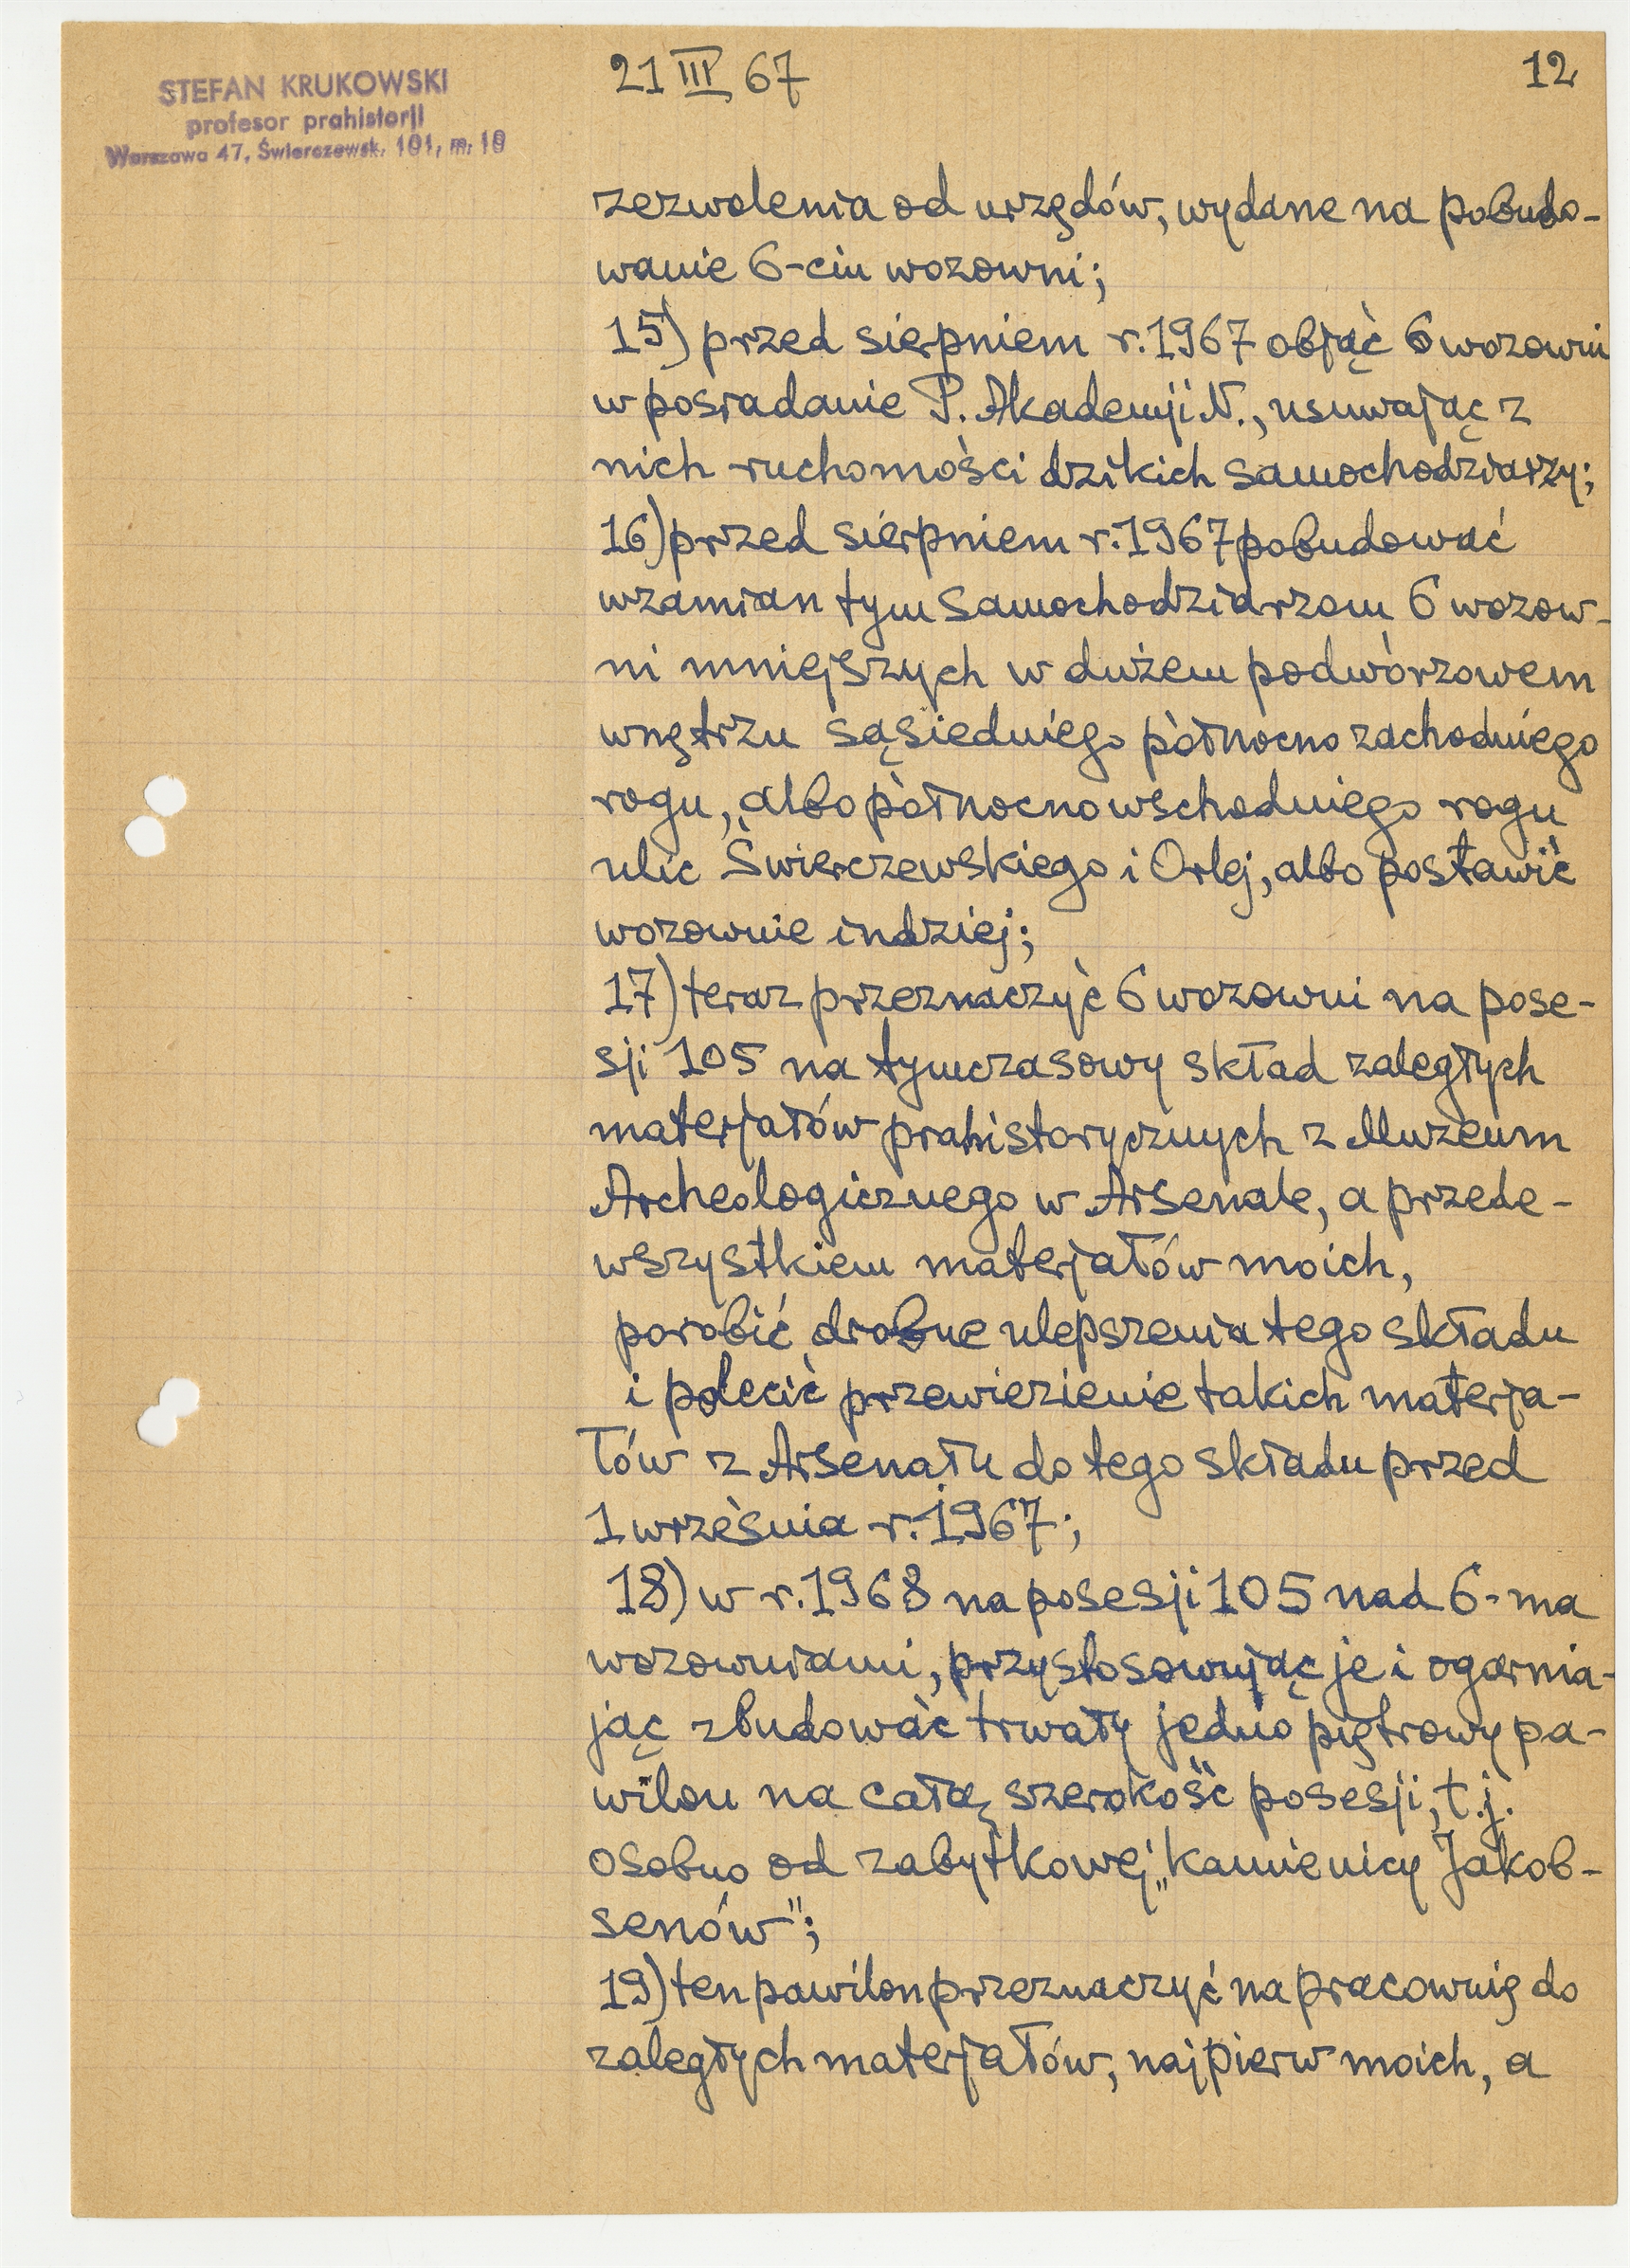 STEFAN KRUKOWSKI
profesor prahistorji
Warszawa 47, Świerczewsk. 101, m. 10
21 III 67
12
zezwolenia od urzędów, wydane na pobudo-
wanie 6-ciu wozowni;
15) przed sierpniem r. 1967 objąć 6 wozowni
w posiadanie P. Akademji N., usuwając z
nich ruchomości dzikich samochodziarzy;
16) przed sierpniem r. 1967 pobudować
wzamian tym samochodziarzom 6 wozow-
ni mniejszych w dużem podwórzowem
wnętrzu sąsiedniego północno zachodniego
rogu, albo północno wschodniego rogu
ulic Świerczewskiego i Orlej, albo postawić
wozownie indziej;
17) teraz przeznaczyć 6 wozowni na pose-
sji 105 na tymczasowy skład zaległych
materjałów prahistorycznych z Muzeum
Archeologicznego w Arsenale, a przede-
wszystkiem materjałów moich,
porobić drobne ulepszenia tego składu
i polecić przewiezienie takich materja-
łów z Arsenału do tego składu przed
1 września r. 1967;
18) w r. 1968 na posesji 105 nad 6-ma
wozowniami, przystosowując je i ogarnia-
jąc zbudować trwały jedno piętrowy pa-
wilon na całą szerokość posesji, t.j.
osobno od zabytkowej „kamienicy Jakob-
senów";
19) ten pawilon przeznaczyć na pracownię do
zaległych materjałów, najpierw moich, a